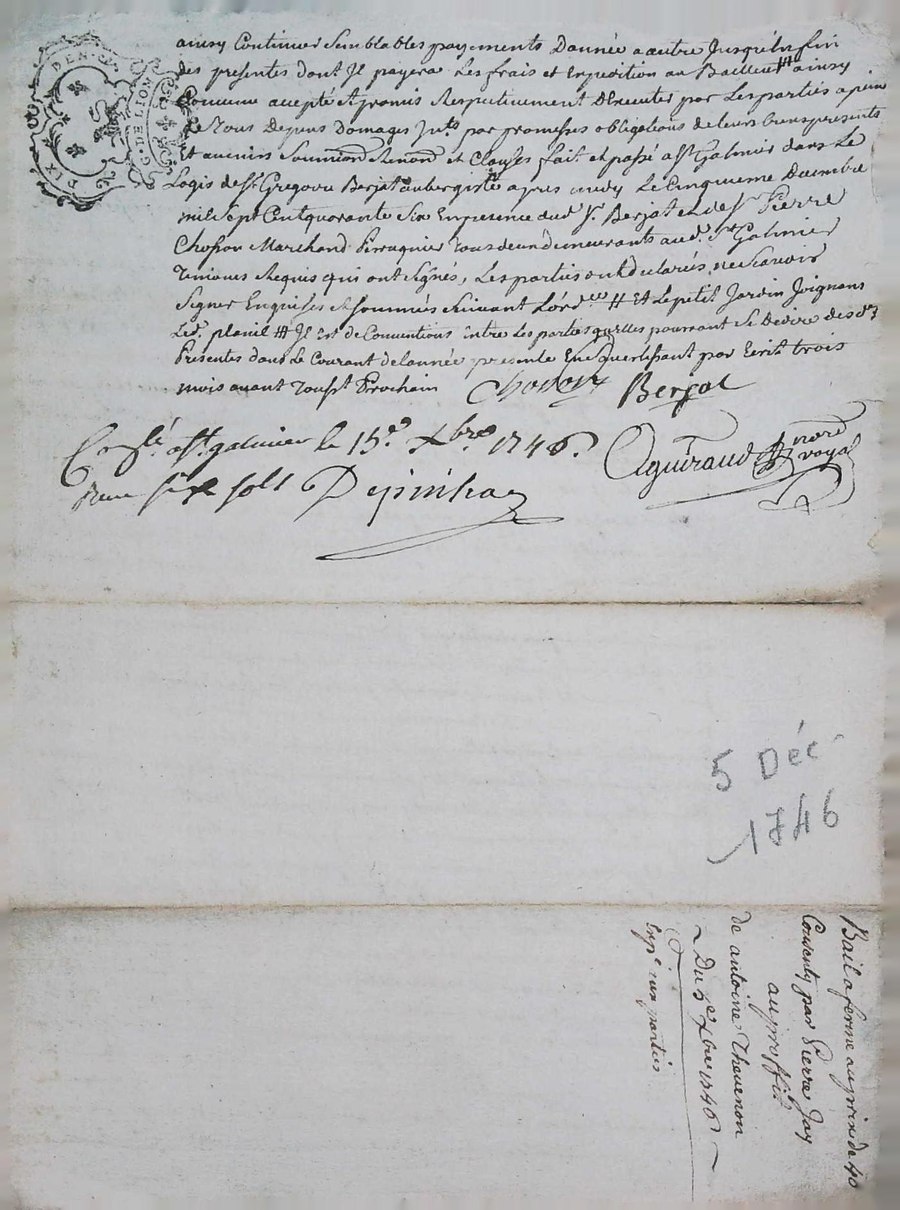 DIX DEN.
G. DE LION
ainsy Continuer Semblables payements Dannée a autre Jusqu'en fin
des presentes dont Jl payera Les frais et Expedition au Bailleur # ainsy
Convenu accepté et promis Respectivement Dexecuter par Les parties a peine
de Tous Depens Domages Jnts. par promesses obligations de leurs biens presents
Et avenirs Soumon. Renon. et Clauses fait et passé a St. Galmier dans Le
Logis de Sr. Gregoire Berjat aubergiste apres midy Le Cinquieme Decembre
mil Sept Centquarante Six En presence dud. Sr. Berjat et de Sr. Pierre
Chosson Marchand Perruquier Tous deux demeurants aud. St. Galmier
Temoins Requis qui ont Signés, Les parties ont declarés ne Scavoir
Signer Enquises et Sommées Suivant L'ordce. # Et Le petit Jardin Joignant
Led. # Jl Est de Conventions entre Les parties qu'elles pourront Se Dedire des d.
Presentes dans Le Courant de l'année presente En avertissant par Ecrit trois
mois avant Prochain
Berjat
a St. galmier le 15e. Xbre 1746.
Aguiraud nore royal
six sols
5 Déc
1746
Bail a ferme au prix de 40
Consenty par Pierre Jay
au proffit
de antoine Thevenon
~ Du 5e Xbre 1746 ~
Expé. aux parties